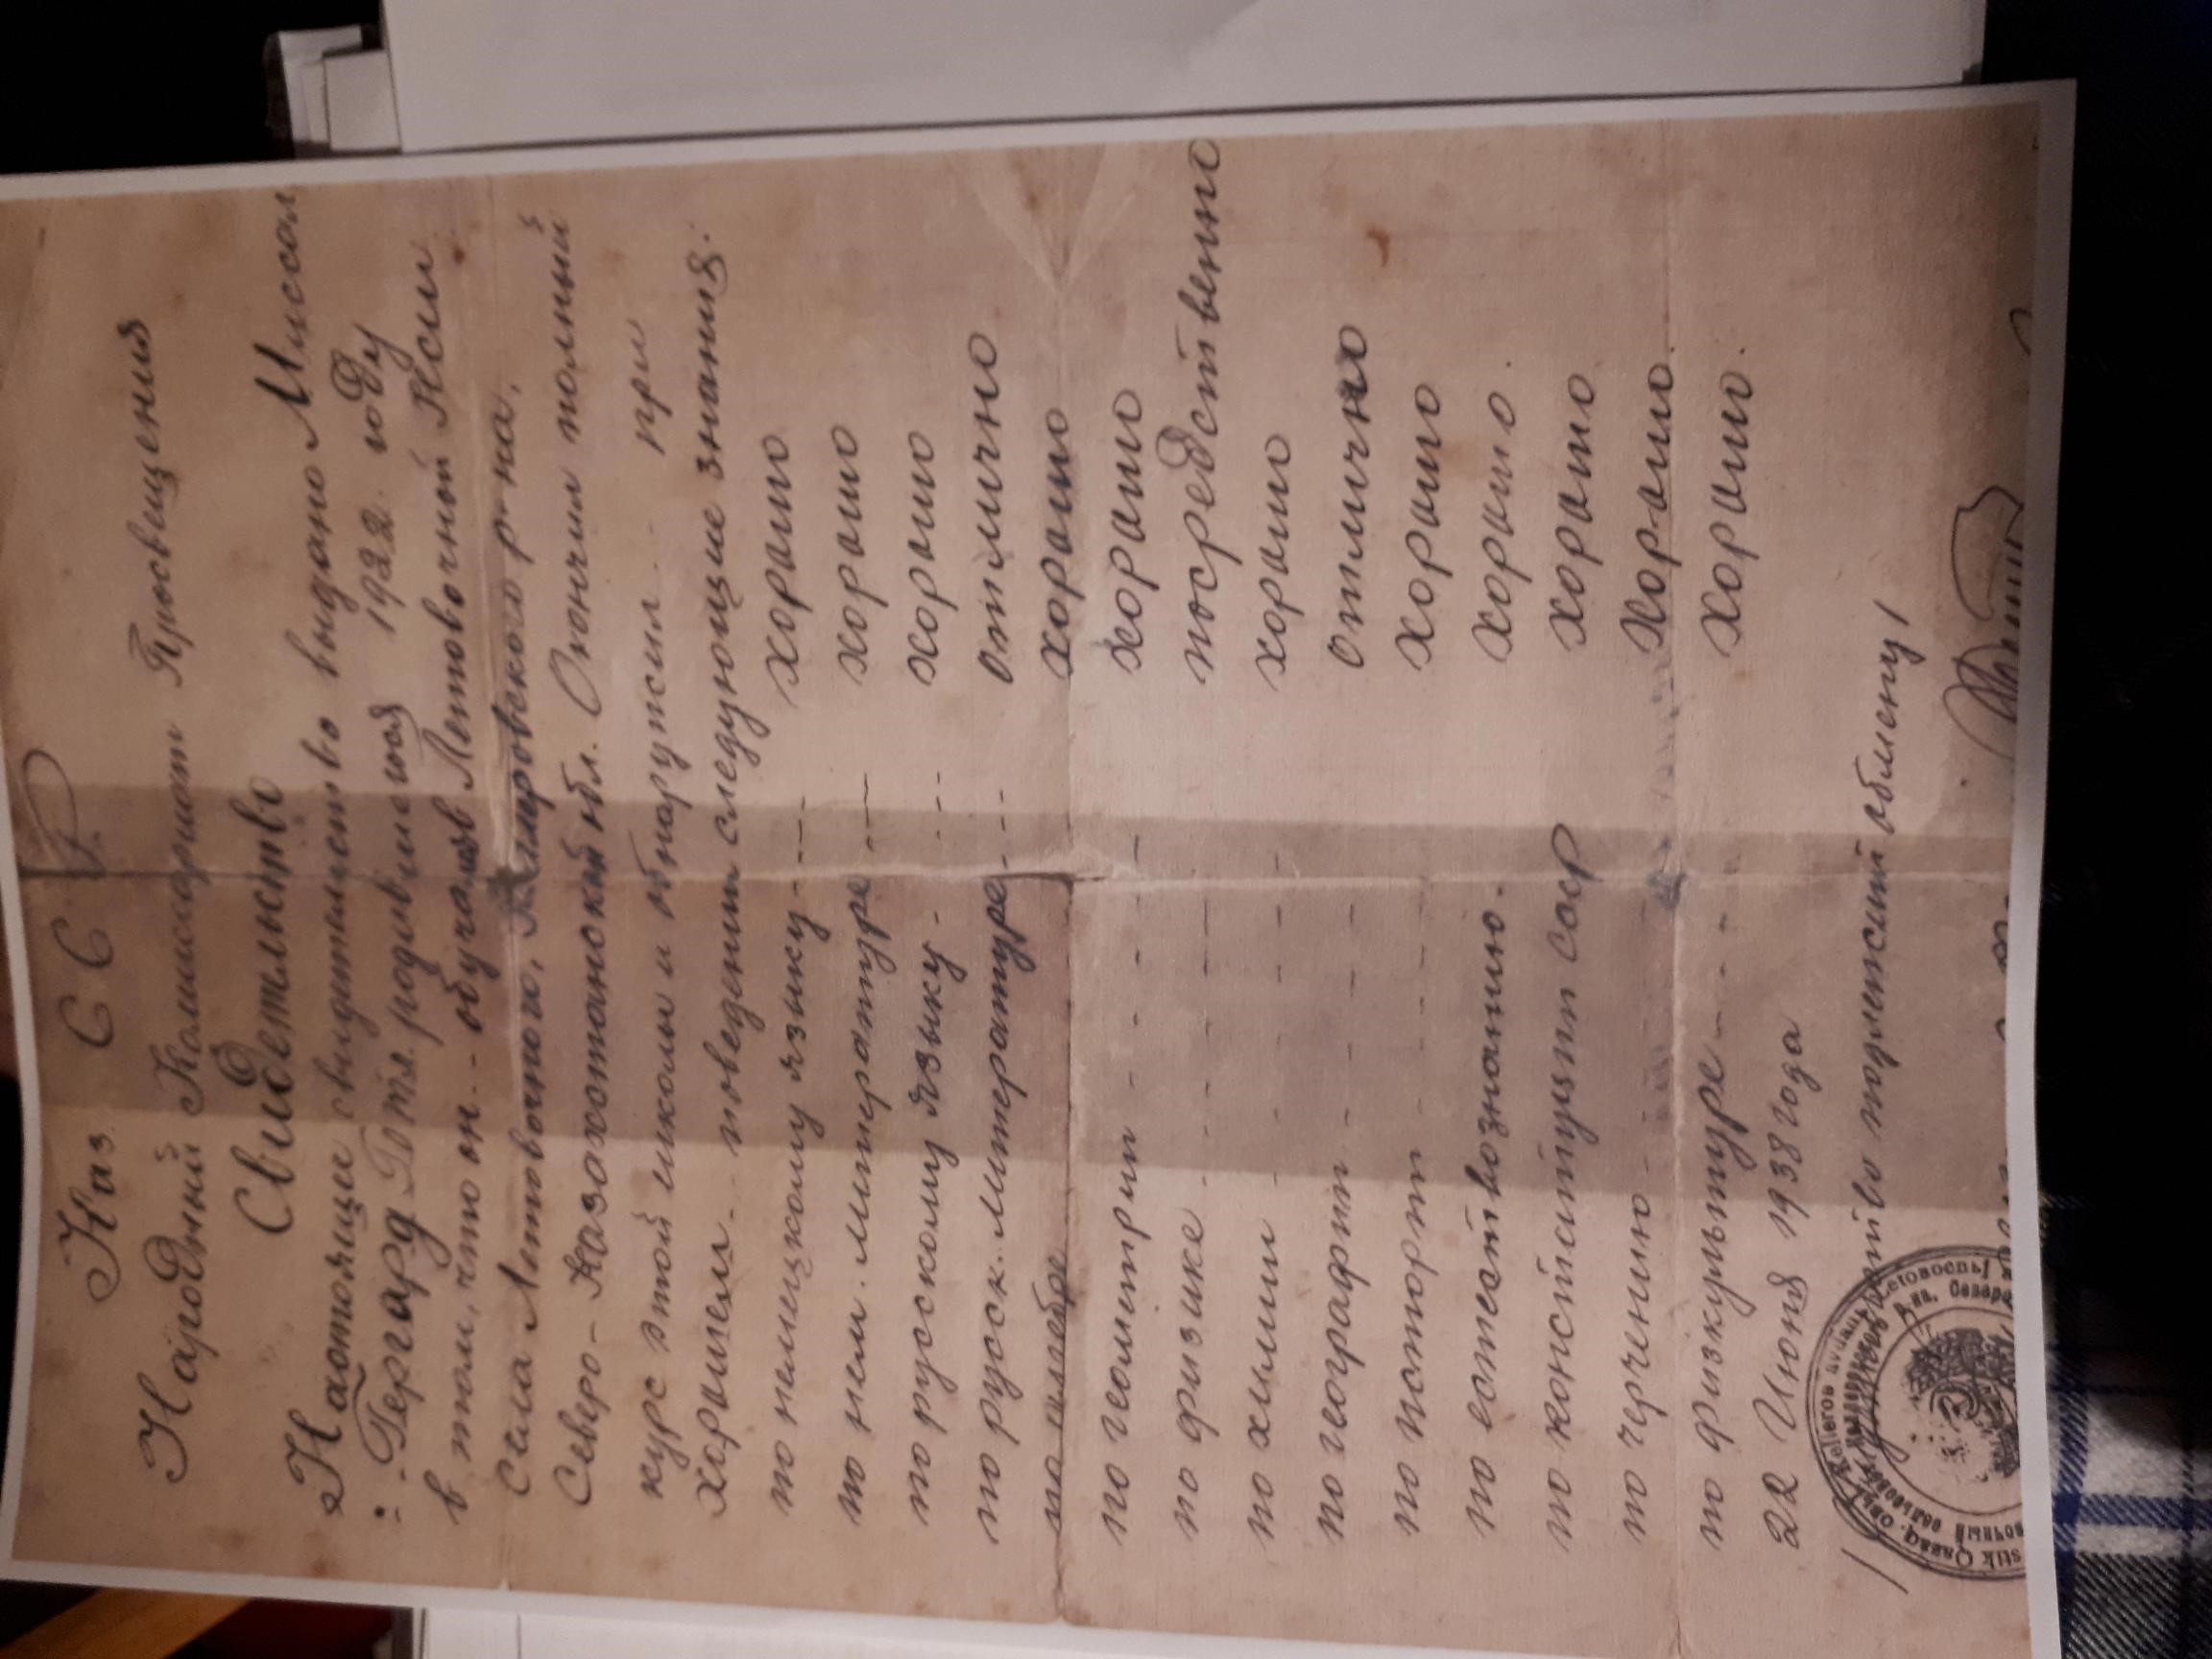 Каз. С С Р.
Народный Комиссариат Просвещения
Свидетельство
Настоящее свидетельство выдано
Гергард родившемуся 1922. году
в том, что он обучался в Летовочной Нсш
села Летовочного, р-на,
Северо-Казахстанской обл. Окончил полный
курс этой школы и обнаружил при
хорошем поведении следующие знания:
по немецкому языку хорошо
по нем. литературе хорошо
по русскому языку хорошо
по русск. литературе отлично
по алгебре хорошо
по геометрии хорошо
по физике посредственно
по химии хорошо
по географии отлично
по истории хорошо
по естествознанию. хорошо.
по конституции ссср хорошо
по черчению хорошо.
по физкультуре хорошо.
22 Июня 1938 года
подлежит обмену/